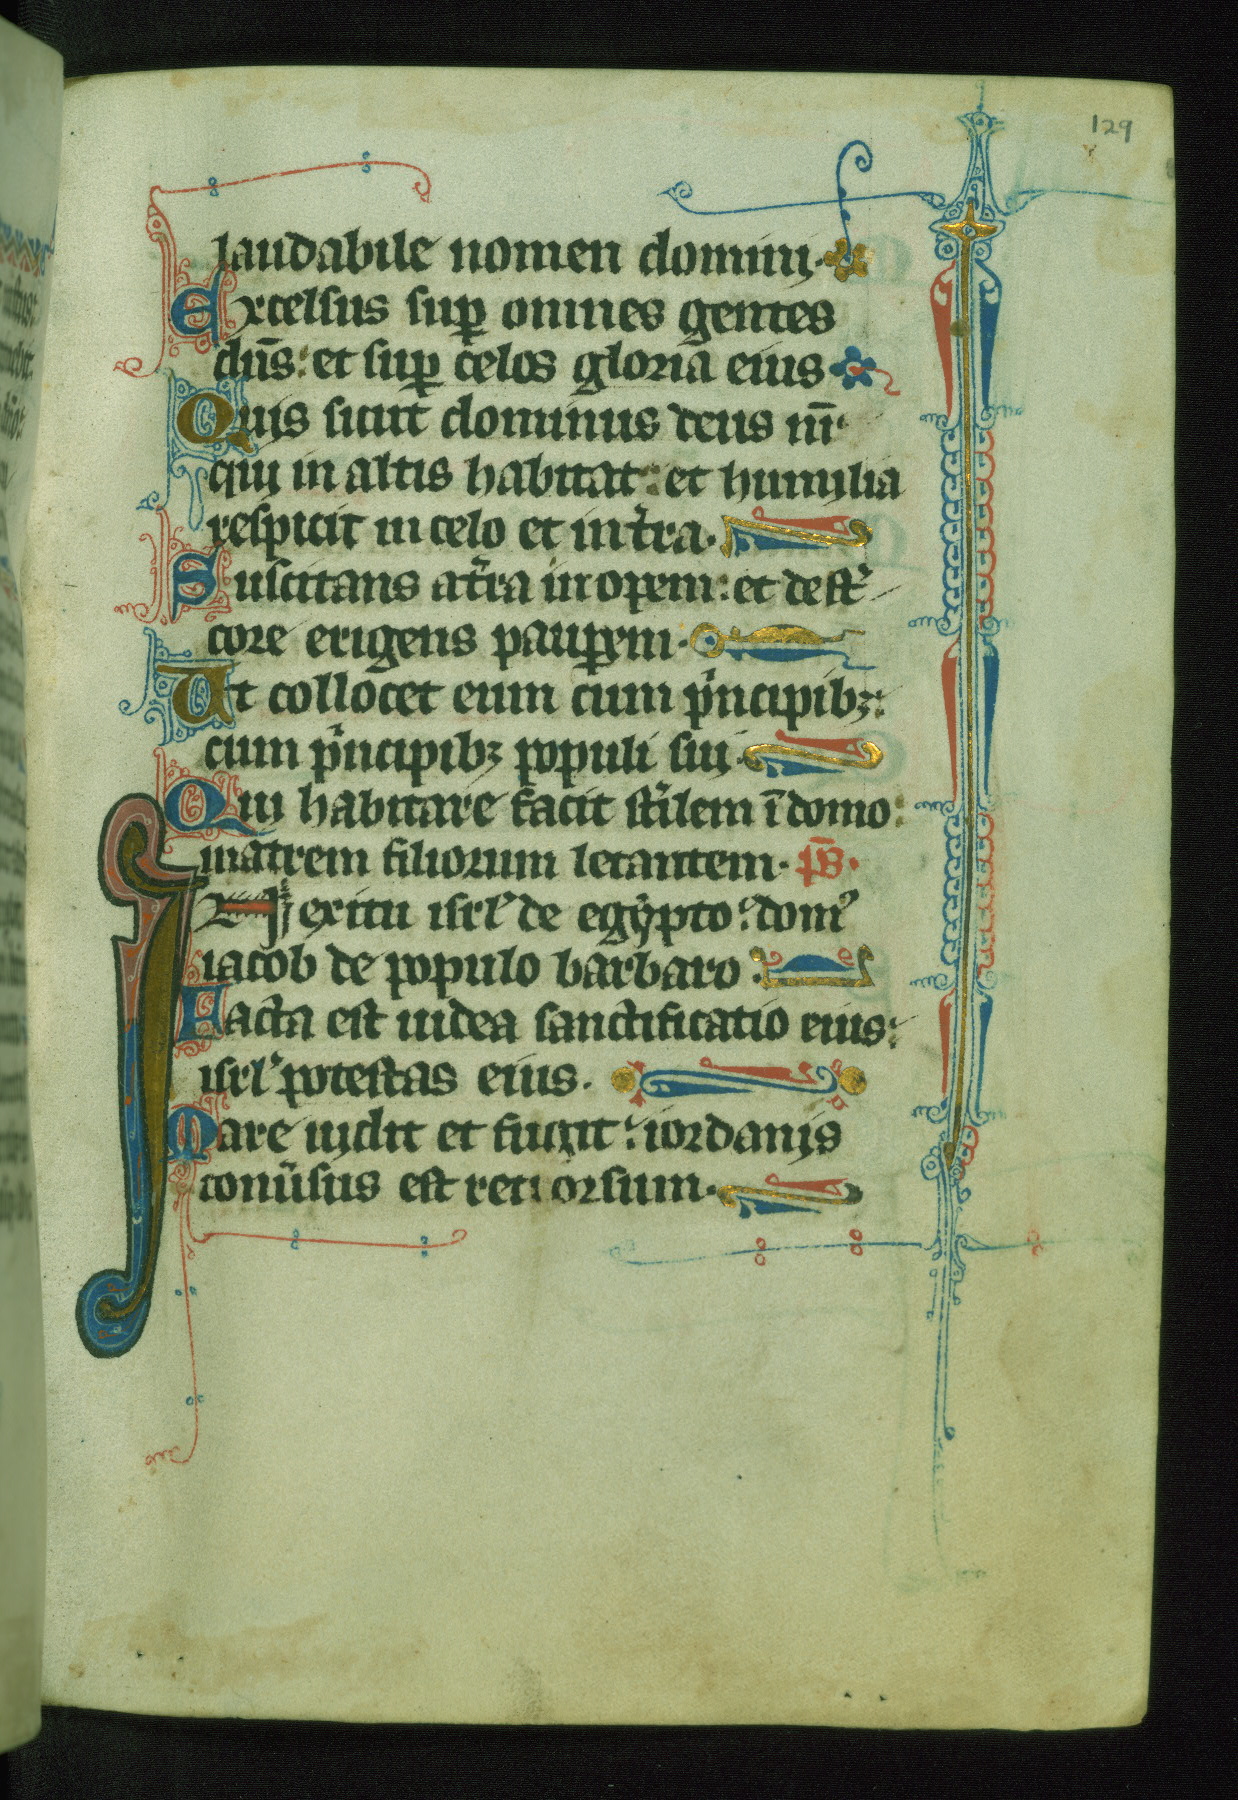 129
laudabile nomen domini.
Excelsus sup̲ omnes gentes
dn̄s: et sup̲ celos gloria eius
Quis sicut dominus deus nr̄.
qui in altis habitat: et humilia
respicit in celo et in t̓ra.
Suscitans a t̓ra inopem: et de st̓
core erigens paup̲em.
Ut collocet eum cum p̓ncipibꝫ:
cum p̓ncipibꝫ populi sui.
Qui habitare facit st̓ilem ī domo:
matrem filiorum letantem. ps̄.
In exitu isrl̓ de egypto: dom̓
iacob de populo barbaro:
Facta est iudea sanctificatio eius:
isrl̓ potestas eius.
Mare vidit et fugit: iordanis
conu̓sus est retrorsum.